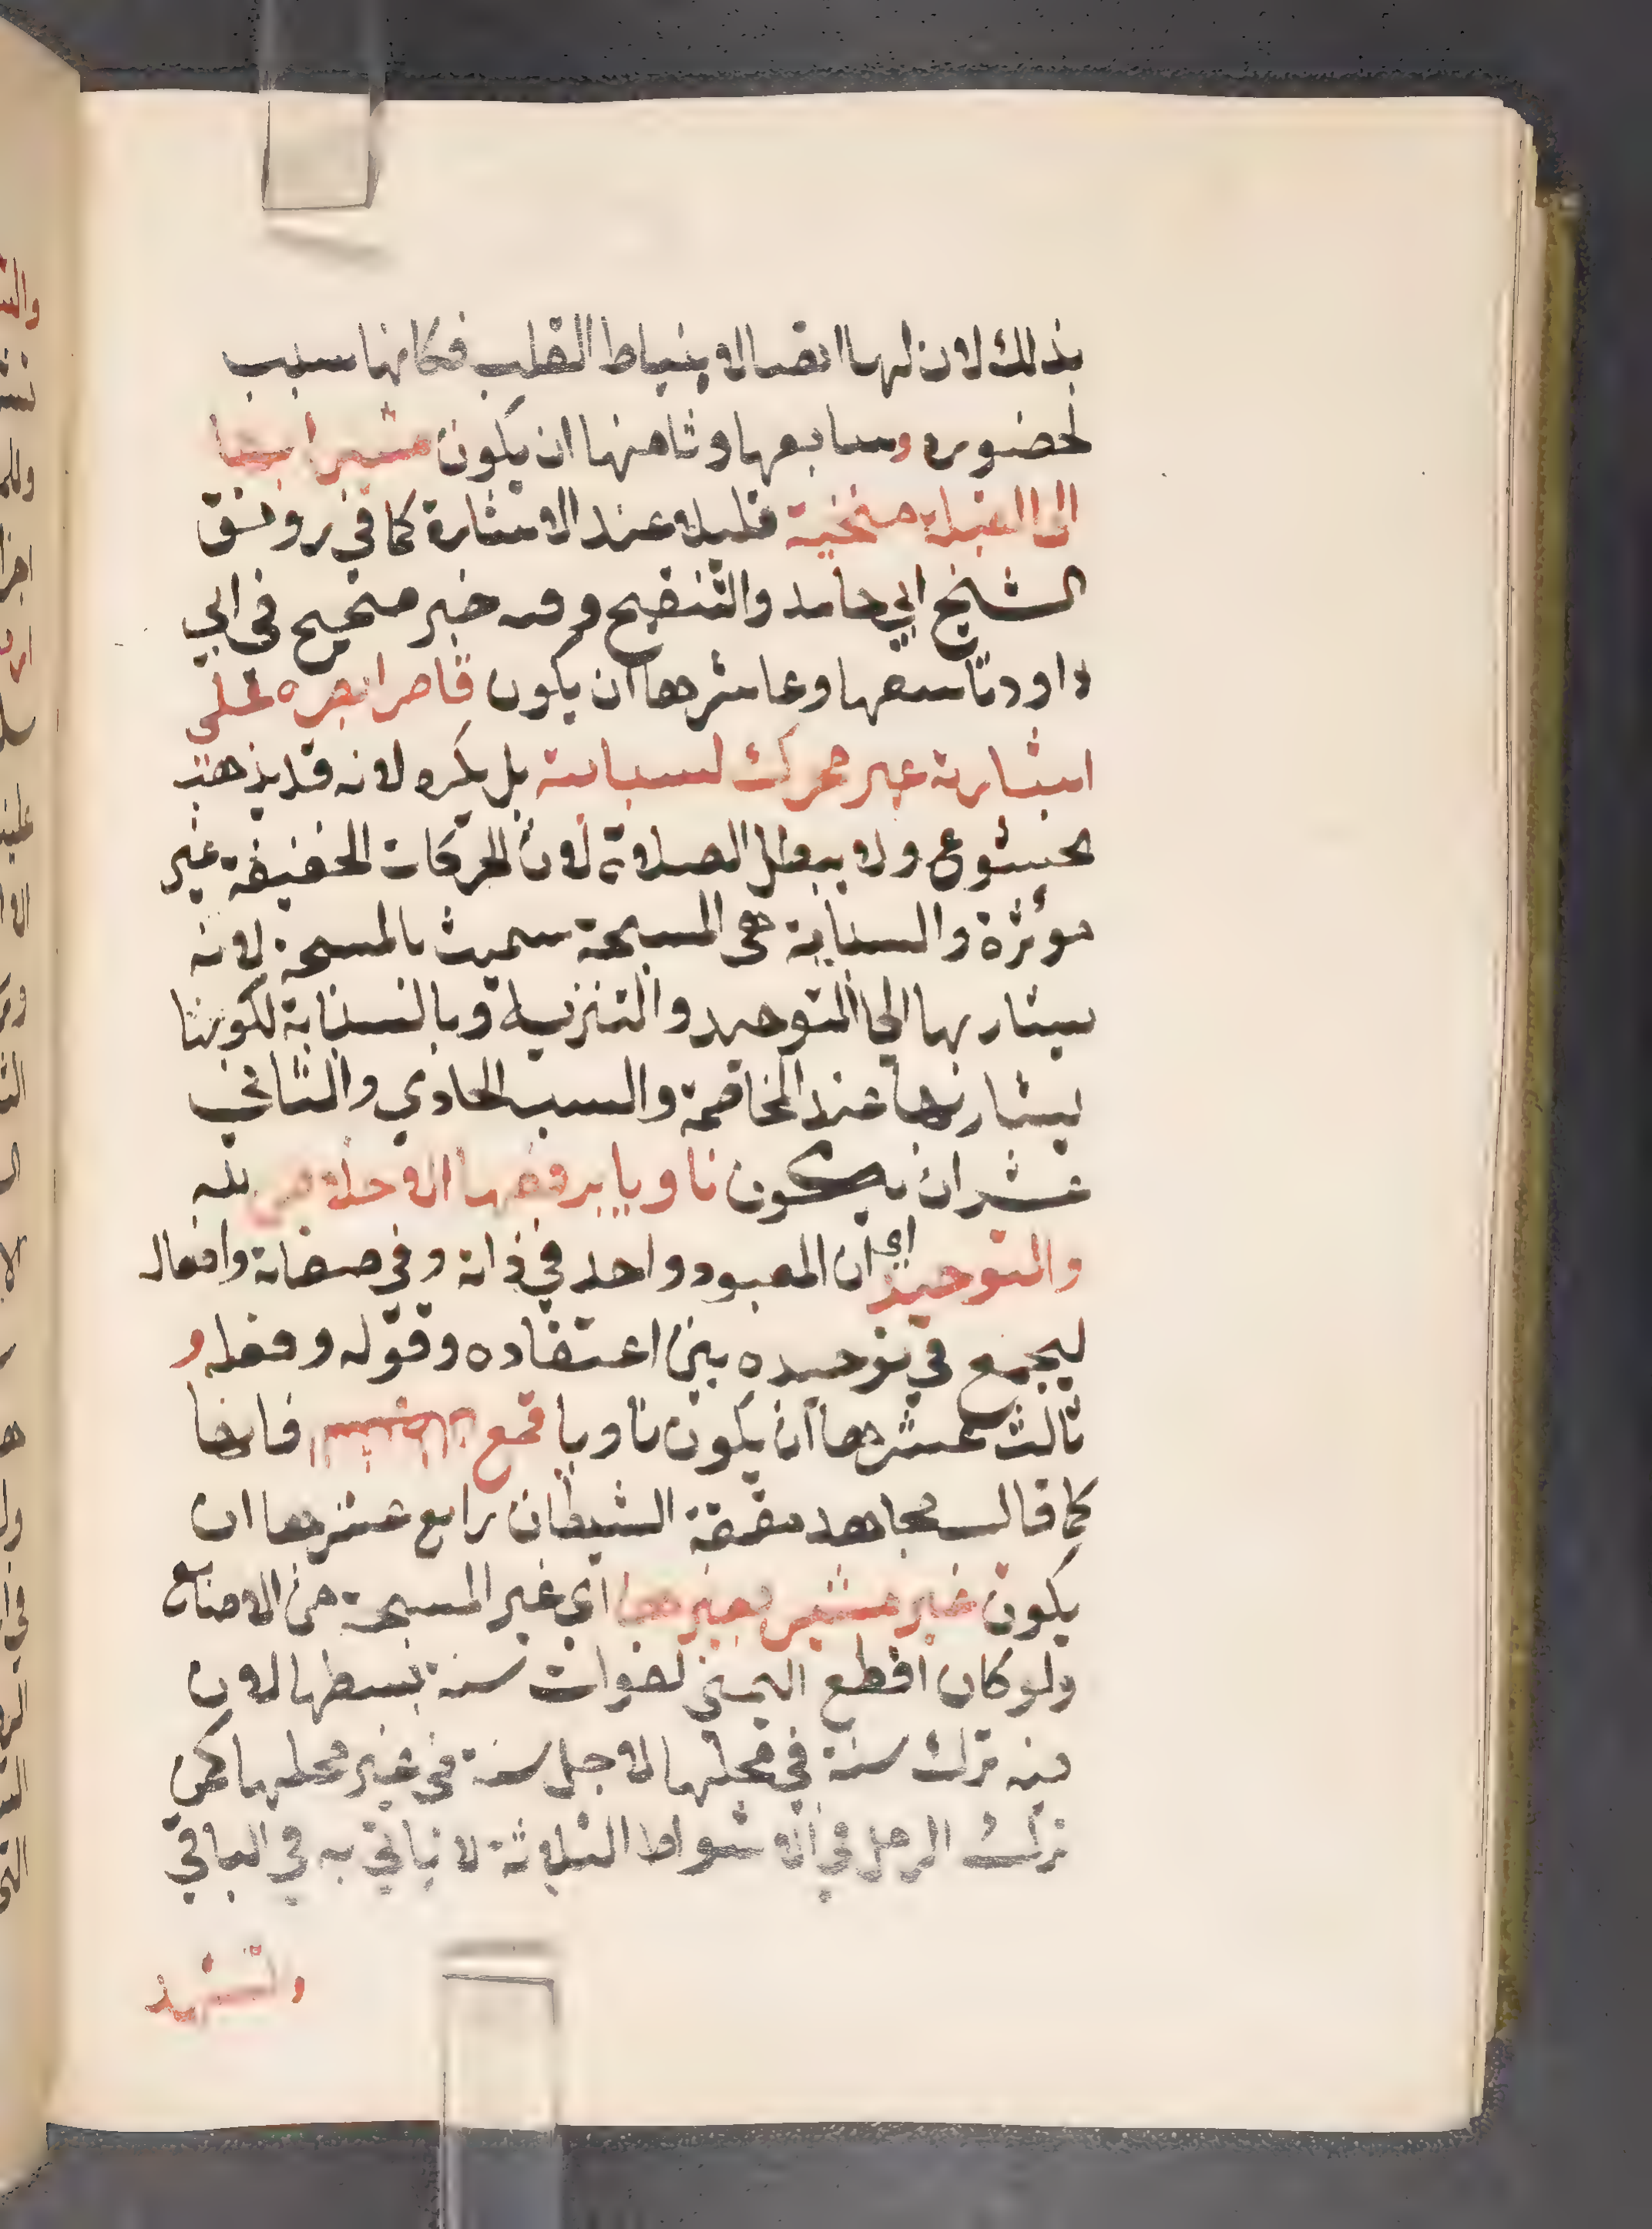 بذلك لان لها اتصالا بنياط القلب فكانها سبب
لحضوره وسابعها وثامنها ان يكون مشيرا بها
الى القبلة منحنية قليلا عند الاشارة كما في رونق
الشيخ ابي حامد والتنقيح وفيه خبر صحيح في ابي
داود تاسعها وعاشرها ان يكون قاصرا بصره على
اشارته غير محرك لسبابته بل يكره لانه قد يذهب
لخشوع ولا يبطل الصلاة لان الحركات الخفيفة غير
مؤثرة والسبابة هي المسبحة سميت بالمسبحة لانه
يشار بها الى التوحيد والتنزيه وبالسبابة لكونها
يشار بها عند المخاصمة والسب الحادي والثاني
عشر ان يكون ناويا برفعها الاخلاص لله
والتوحيد اي ان المعبود واحد في ذاته وفي صفاته وافعاله
ليجمع في توحيده بين اعتقاده وقوله وفعله و
ثالث عشرها ان يكون ناويا قمع الشيطان فانها
كما قال مجاهد مقمعة الشيطان رابع عشرها ان
يكون غير مشير بغيرها اي غير المسبحة من الاصابع
ولو كان اقطع اليمنى لفوات سنة بسطها لان
فيه ترك سنة في محلها لاجل سنة في غير محلها كمن
ترك الرمل في الاشواط الثلاثة لا ياتي به في الباقي
والتشهد